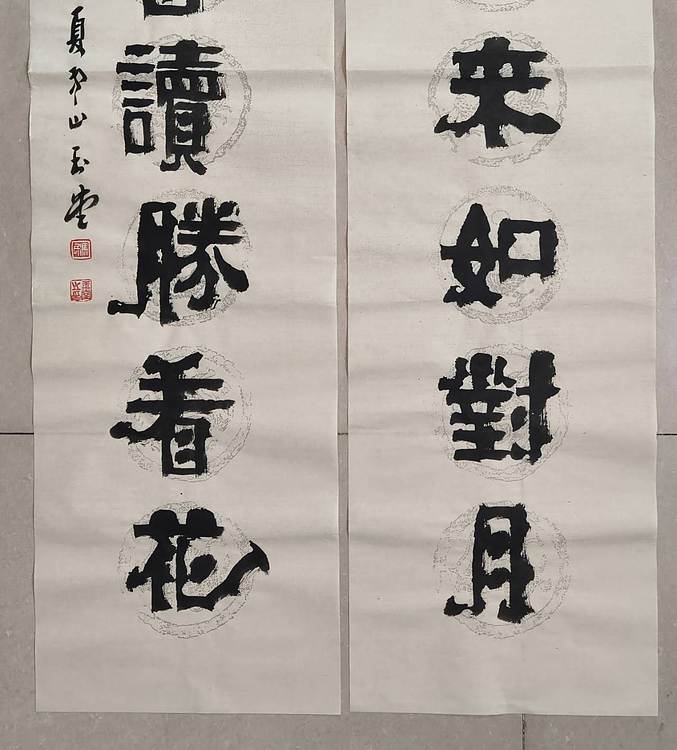 來如對月
讀勝看花
夏 山玉堂